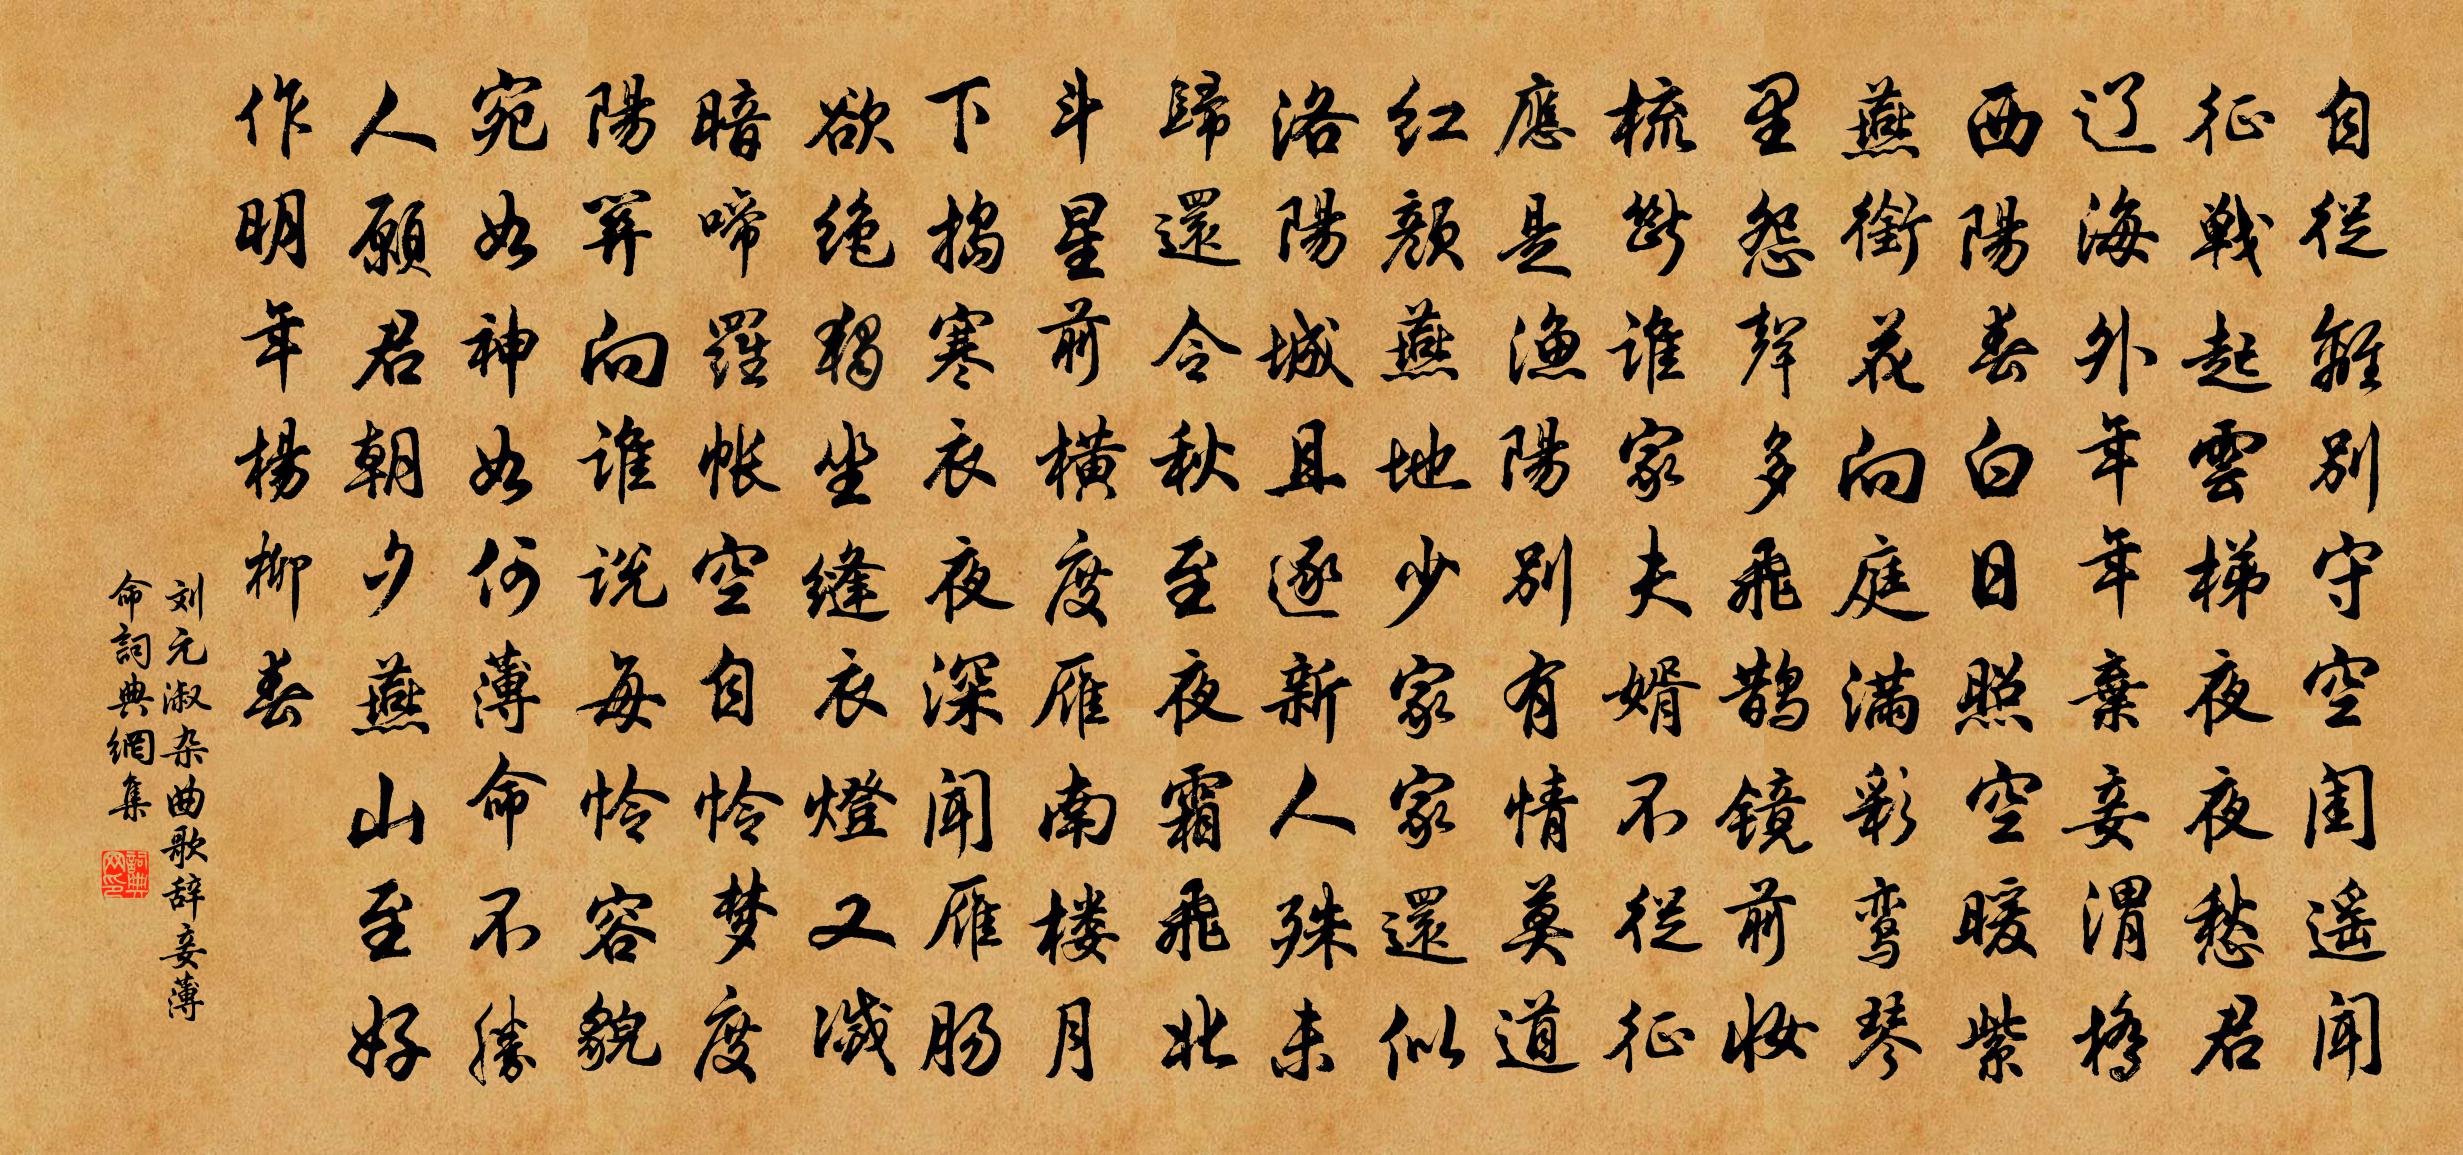 自從離別守空闺遥闻
征戰起雲梯夜夜愁君
辽海外年年棄妾渭橋
西陽春白日照空暖紫
燕銜花向庭满彩鸾琴
里怨聲多飛鹊镜前妝
梳斷谁家夫婿不從征
應是渔陽别有情莫道
红颜燕地少家家還似
洛陽城且逐新人殊未
歸還令秋至夜霜飛北
斗星前横度雁南楼月
下搗寒衣夜深闻雁肠
欲绝獨坐縫衣燈又滅
暗啼羅帐空自怜梦度
陽關向谁说每怜容貌
宛如神如何薄命不勝
人願君朝夕燕山至好
作明年楊柳春
刘元淑杂曲歌辞妾薄
命詞典網集
詞典网印